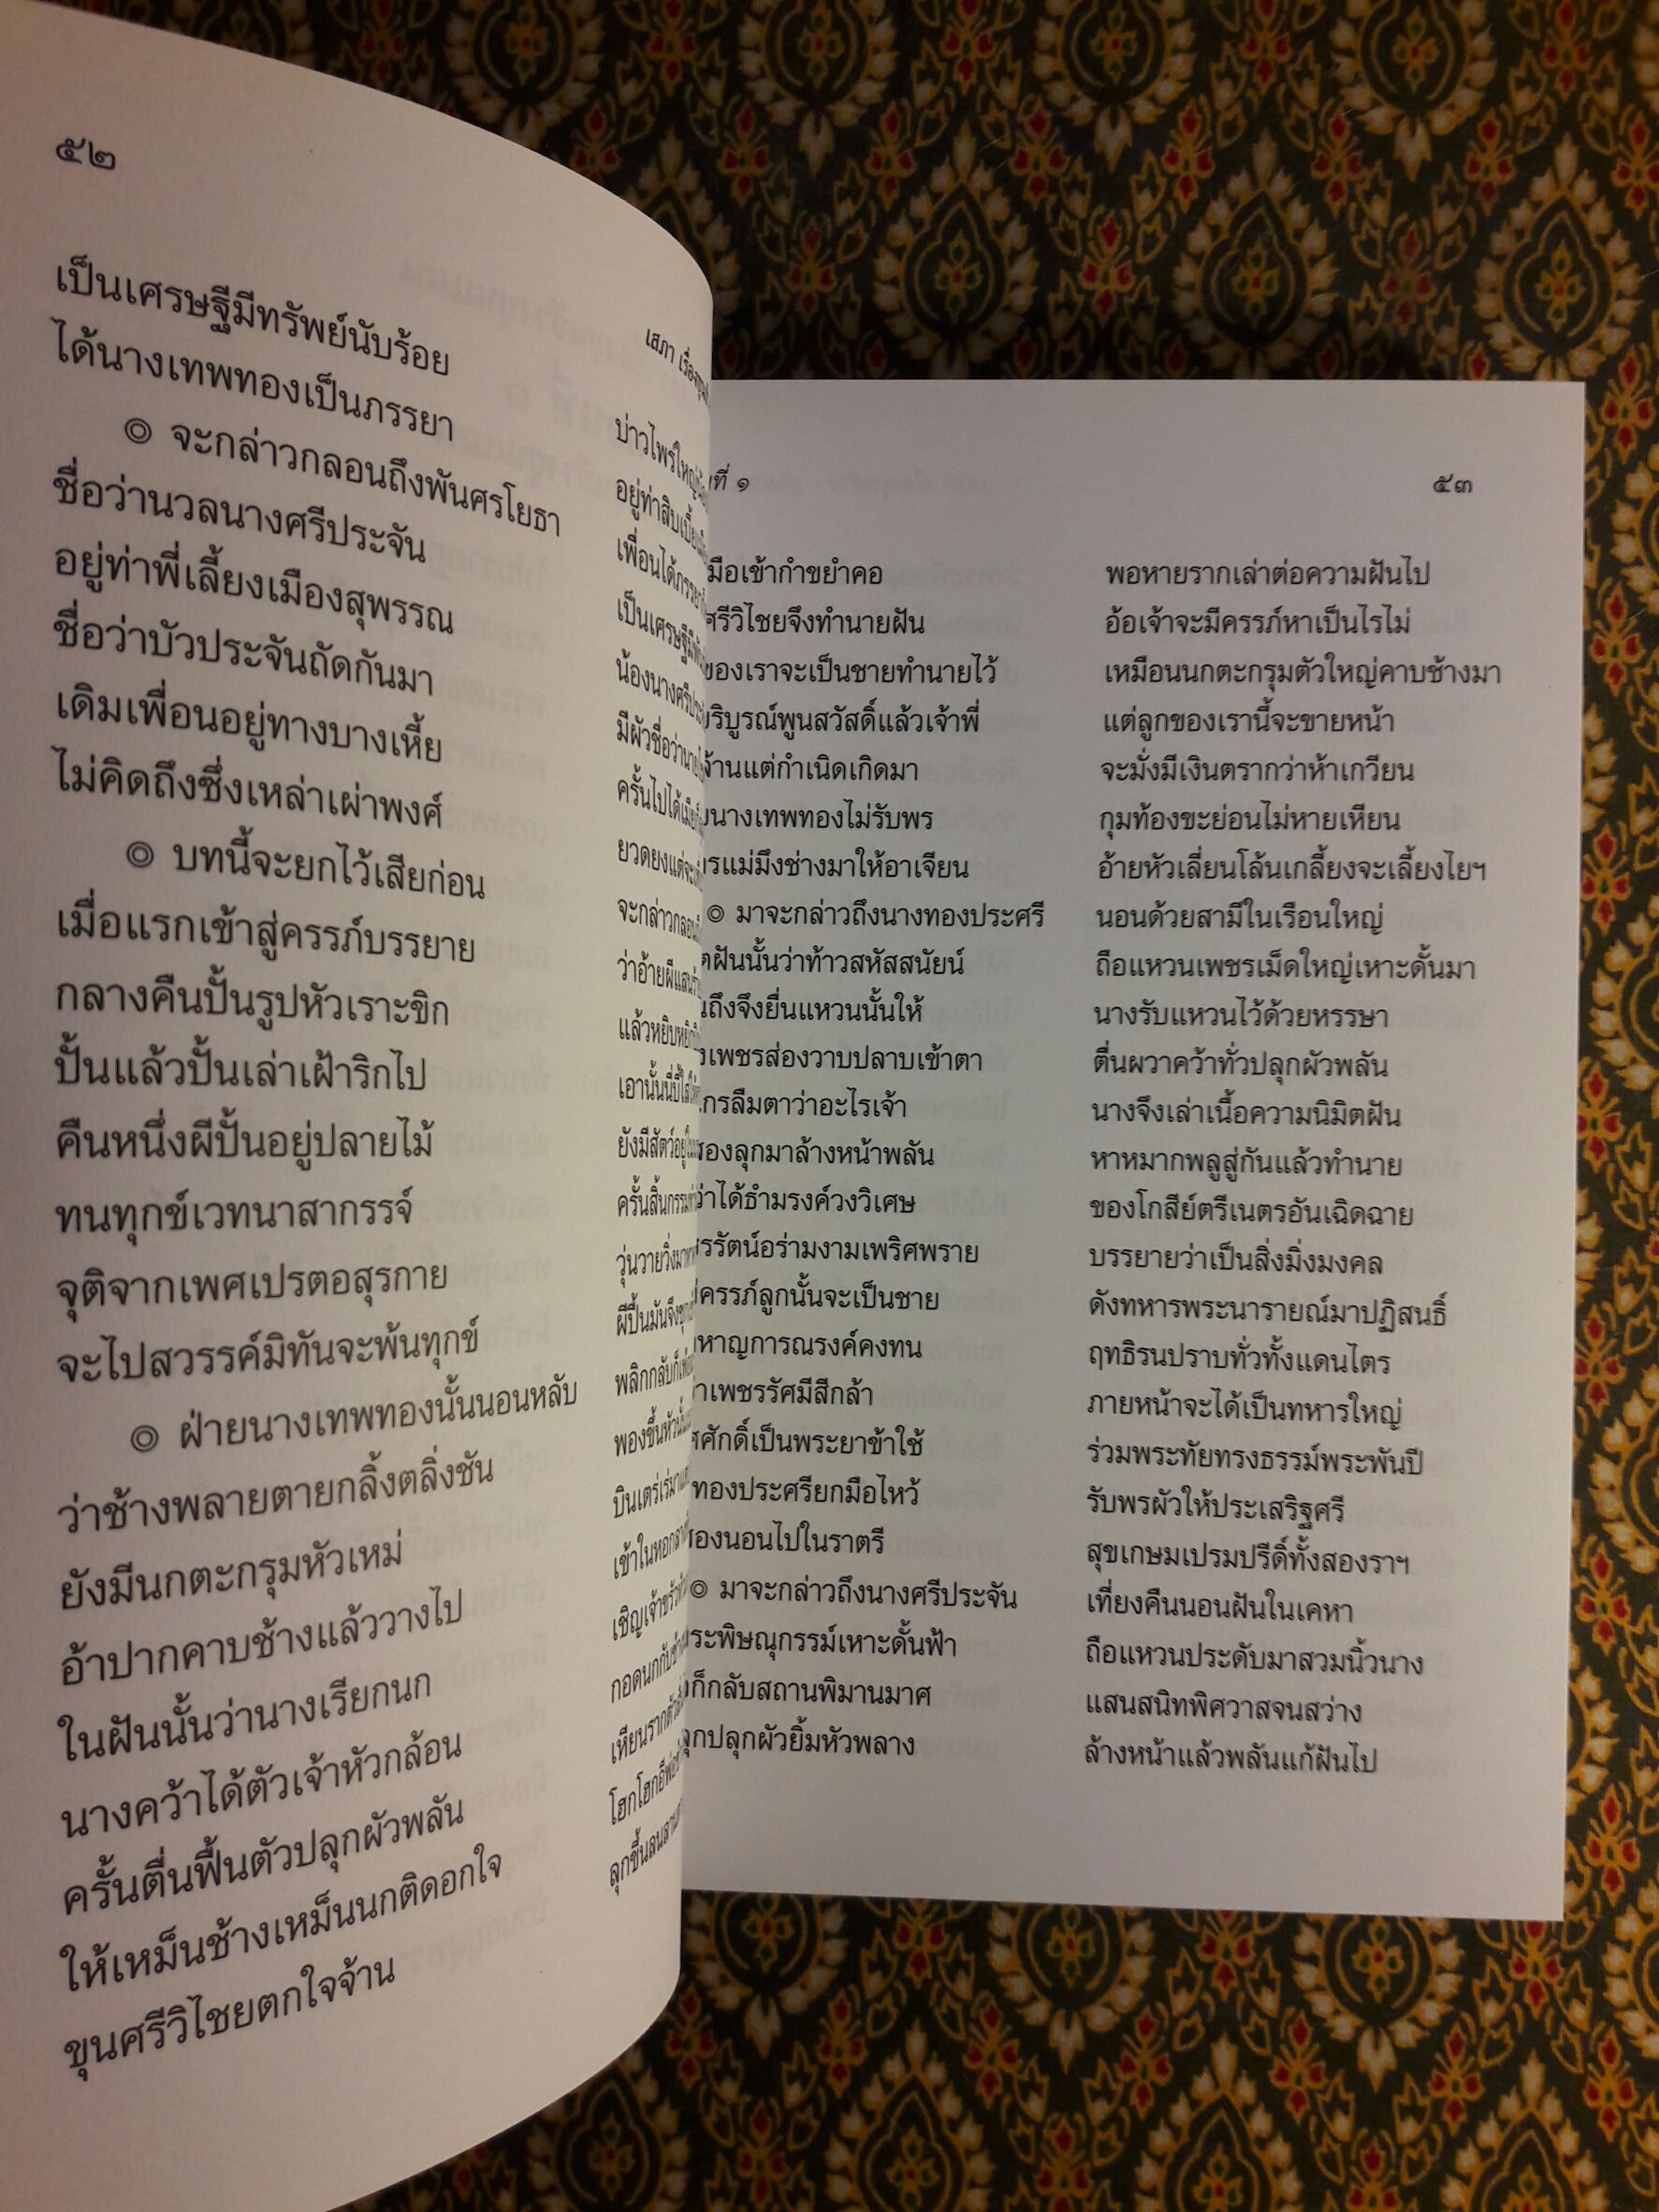 ๕๒
เสภา เรื่อง
เป็นเศรษฐีมีทรัพย์นับร้อย
บ่าวไพร่ใหญ่
ได้นางเทพทองเป็นภรรยา
อยู่ท่าสิบเบี้ย
๏ จะกล่าวกลอนถึงพันศรโยธา
เพื่อนได้ภรรยา
ชื่อว่านวลนางศรีประจัน
เป็นเศรษฐีมี
อยู่ท่าพี่เลี้ยงเมืองสุพรรณ
น้องนางศรี
ชื่อว่าบัวประจันถัดกันมา
มีผัวชื่อว่านาย
เดิมเพื่อนอยู่ทางบางเหี้ย
ครั้นไปได้เมีย
ไม่คิดถึงซึ่งเหล่าเผ่าพงศ์
ยวดยงแต่จะ
๏ บทนี้จะยกไว้เสียก่อน
จะกล่าวกลอน
เมื่อแรกเข้าสู่ครรภ์บรรยาย
ว่าอ้ายผีแสน
กลางคืนปั้นรูปหัวเราะขิก
แล้วหยิบหยิก
ปั้นแล้วปั้นเล่าเฝ้าริกไป
เอานั้นนี่บี้ใส่
คืนหนึ่งผีปั้นอยู่ปลายไม้
ยังมีสัตว์อยู่ใน
ทนทุกข์เวทนาสากรรจ์
ครั้นสิ้นกรรม
จุติจากเพศเปรตอสุรกาย
วุ่นวายวิ่งมา
จะไปสวรรค์มิทันจะพ้นทุกข์
ผีปั้นมันจึง
๏ ฝ่ายนางเทพทองนั้นนอนหลับ
พลิกกลับก็
ว่าช้างพลายตายกลิ้งตลิ่งชัน
พองขึ้นหัวนั้น
ยังมีนกตะกรุมหัวเหม่
บินเตร่เร่มา
อ้าปากคาบช้างแล้ววางไป
เข้าในหอกลาง
ในฝันนั้นว่านางเรียกนก
เชิญเจ้าขรัว
นางคว้าได้ตัวเจ้าหัวกล้อน
กอดนกกับช้าง
ครั้นตื่นฟื้นตัวปลุกผัวพลัน
เหียนราก
ให้เหม็นช้างเหม็นนกติดอกใจ
โฮกโฮก
ขุนศรีวิไชยตกใจจ้าน
ลุกขึ้นลนลาน
ที่ ๑
๕๓
มือเข้ากำขยำคอ
พอหายรากเล่าต่อความฝันไป
ศรีวิไชยจึงทำนายฝัน
อ้อเจ้าจะมีครรภ์หาเป็นไรไม่
ของเราจะเป็นชายทำนายไว้
เหมือนนกตะกรุมตัวใหญ่คาบช้างมา
ริบูรณ์พูนสวัสดิ์แล้วเจ้าพี่
แต่ลูกของเรานี้จะขายหน้า
ล้านแต่กำเนิดเกิดมา
จะมั่งมีเงินตรากว่าห้าเกวียน
นางเทพทองไม่รับพร
กุมท้องขะย่อนไม่หายเหียน
รแม่มึงช่างมาให้อาเจียน
อ้ายหัวเลี่ยนโล้นเกลี้ยงจะเลี้ยงไยฯ
๏ มาจะกล่าวถึงนางทองประศรี
นอนด้วยสามีในเรือนใหญ่
ฝันนั้นว่าท้าวสหัสสนัยน์
ถือแหวนเพชรเม็ดใหญ่เหาะดั้นมา
ถึงจึงยื่นแหวนนั้นให้
นางรับแหวนไว้ด้วยหรรษา
เพชรส่องวาบปลาบเข้าตา
ตื่นผวาคว้าทั่วปลุกผัวพลัน
กรลืมตาว่าอะไรเจ้า
นางจึงเล่าเนื้อความนิมิตฝัน
สองลุกมาล้างหน้าพลัน
หาหมากพลูสู่กันแล้วทำนาย
ว่าได้ธำมรงค์วงวิเศษ
ของโกสีย์ตรีเนตรอันเฉิดฉาย
รรัตน์อร่ามงามเพริศพราย
บรรยายว่าเป็นสิ่งมิ่งมงคล
ครรภ์ลูกนั้นจะเป็นชาย
ดังทหารพระนารายณ์มาปฏิสนธิ์
หาญการณรงค์คงทน
ฤทธิรนปราบทั่วทั้งแดนไตร
าเพชรรัศมีสีกล้า
ภายหน้าจะได้เป็นทหารใหญ่
ศักดิ์เป็นพระยาข้าใช้
ร่วมพระทัยทรงธรรม์พระพันปี
ทองประศรียกมือไหว้
รับพรผัวให้ประเสริฐศรี
สองนอนไปในราตรี
สุขเกษมเปรมปรีดิ์ทั้งสองราฯ
๏ มาจะกล่าวถึงนางศรีประจัน
เที่ยงคืนนอนฝันในเคหา
ระพิษณุกรรม์เหาะดั้นฟ้า
ถือแหวนประดับมาสวมนิ้วนาง
ก็กลับสถานพิมานมาศ
แสนสนิทพิศวาสจนสว่าง
ลุกปลุกผัวยิ้มหัวพลาง
ล้างหน้าแล้วพลันแก้ฝันไป